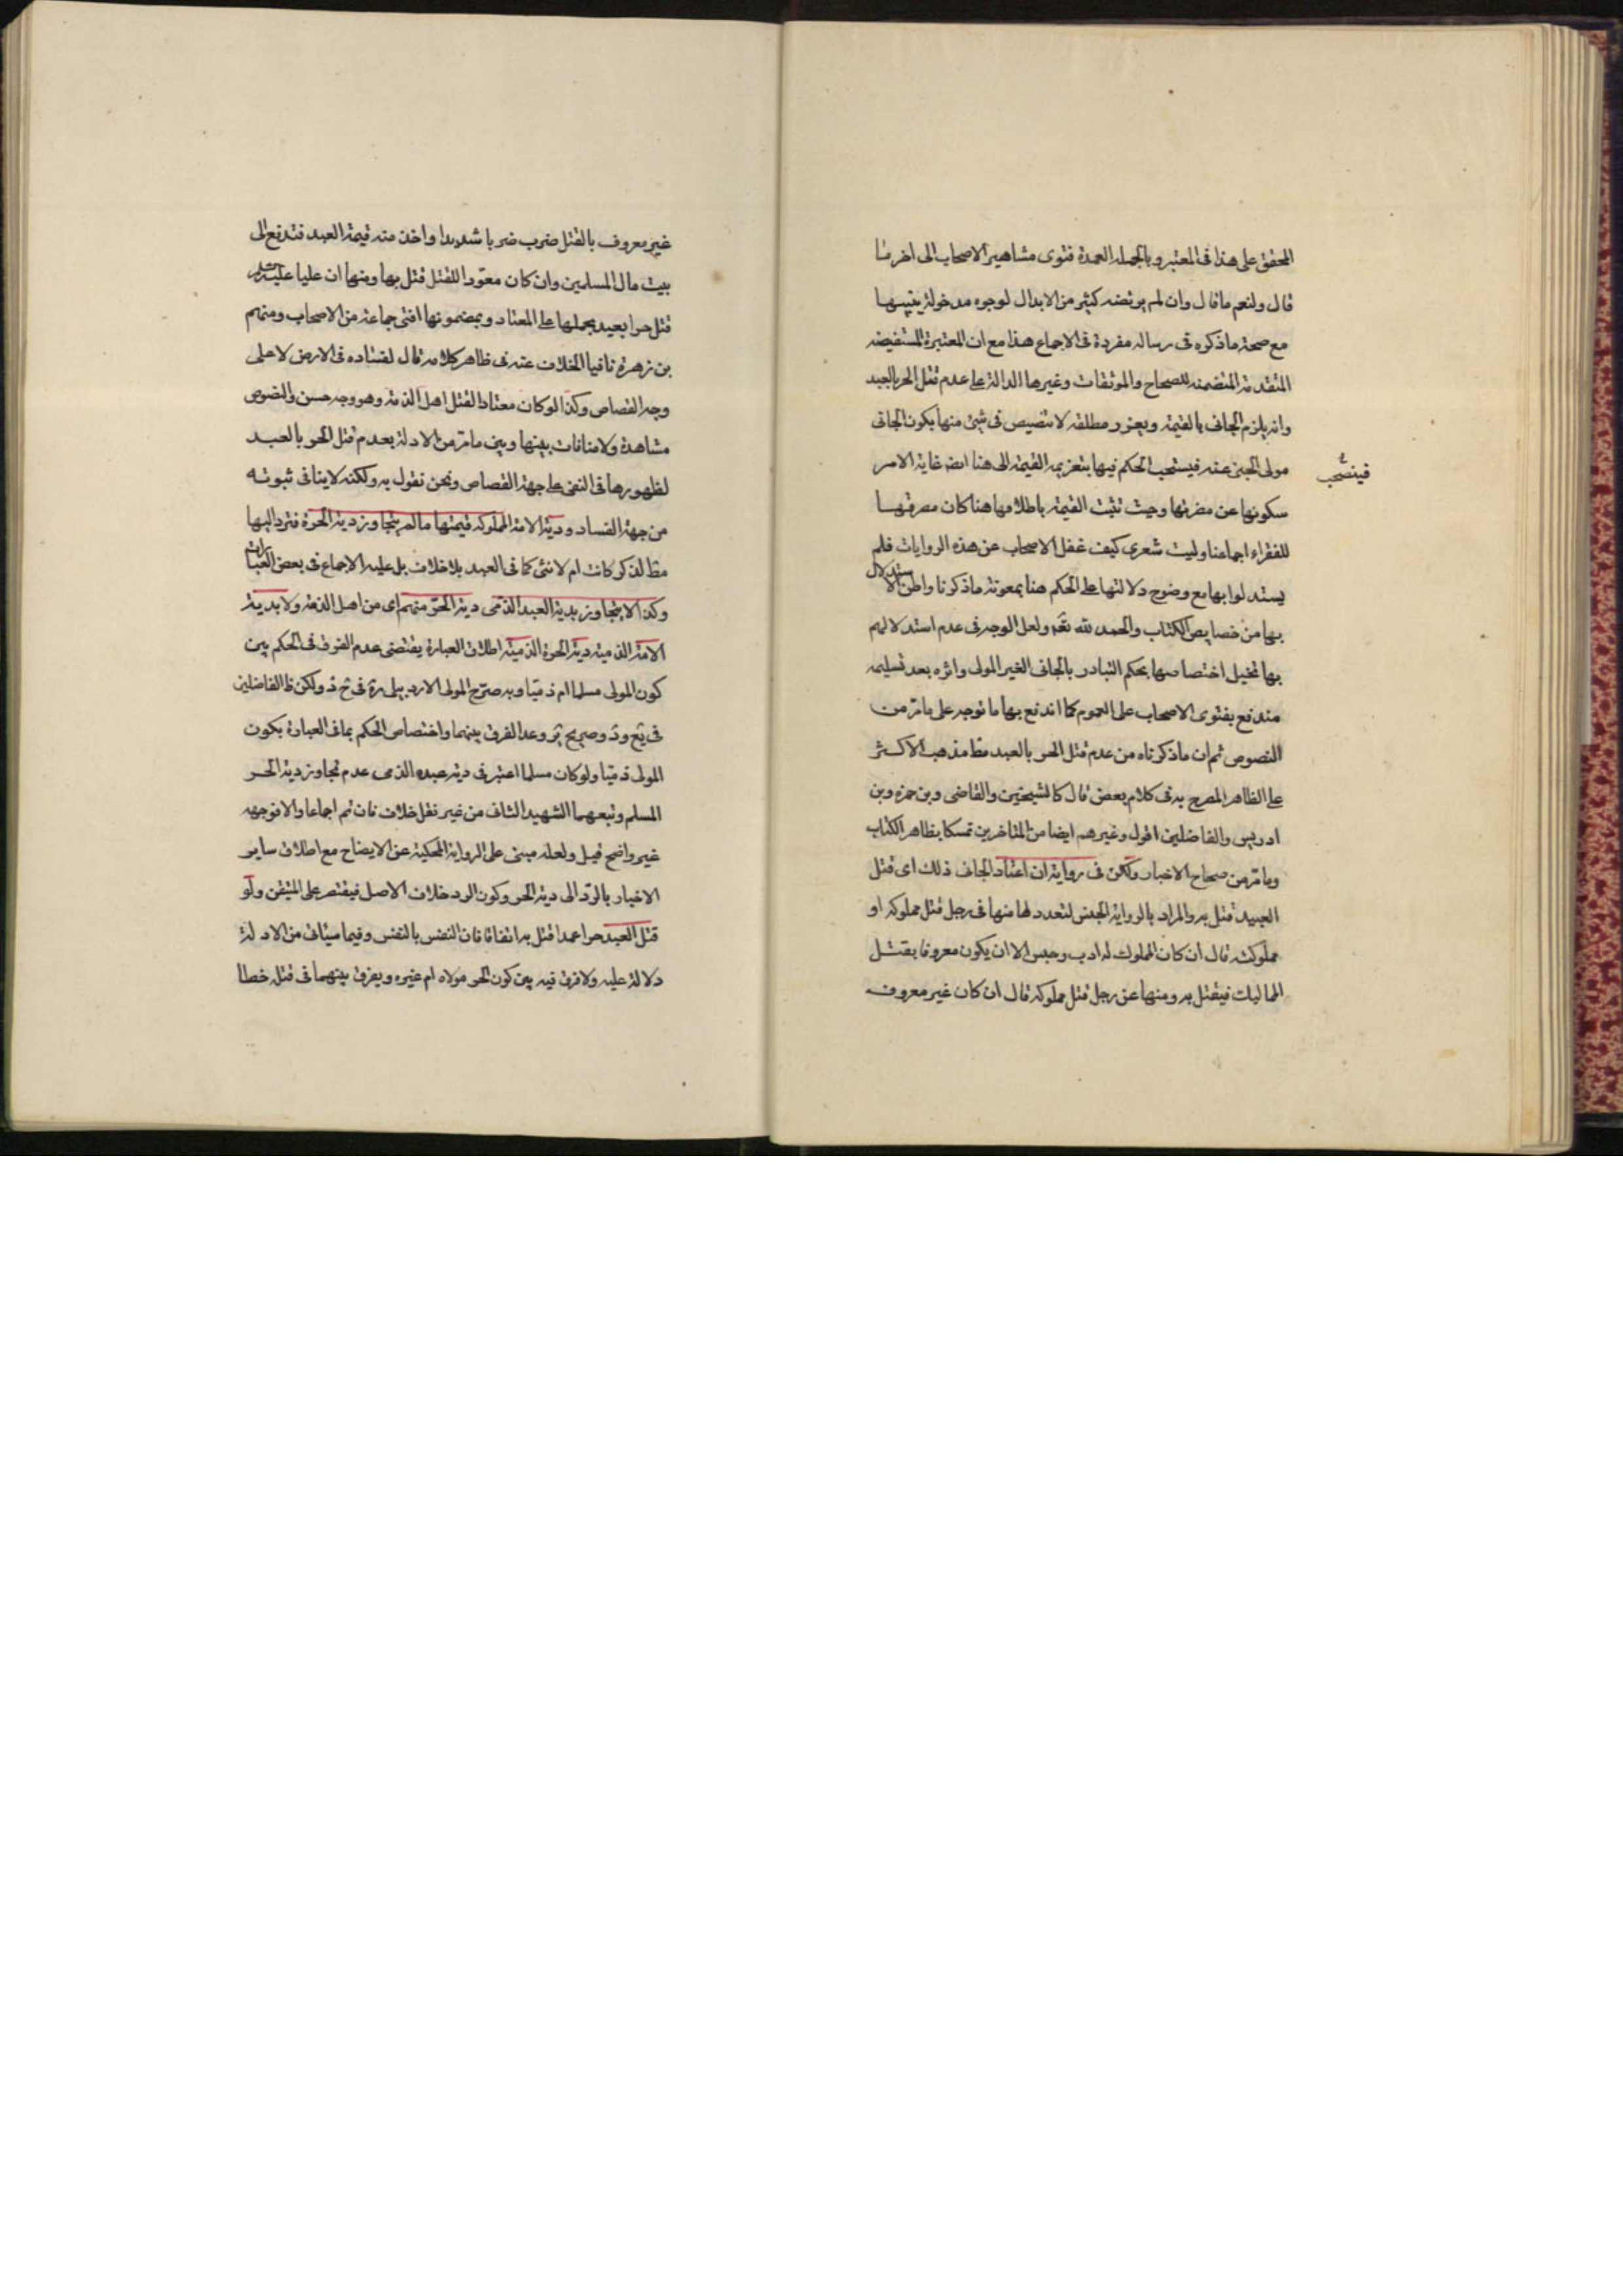 المحقق على هذا فى المعتبر وبالجملة العمدة فتوى مشاهير الاصحاب الى اخر ما
قال ولنعم ما قال وان لم يرتضه كثير من الابدال لوجوه مدخولة بينها
مع صحة ما ذكره فى رسالة مفردة فى الاجماع هذا مع ان المعتبرة المستفيضه
المتقدمة المتضمنة للصحاح والموثقات وغيرها الدالة على عدم قتل الحر بالعبد
وانه يلزم الجانى بالقيمة ويعزر مطلقه لا تنصيص فى شئ منها بكون الجانى
مولى المجنى عنه فيستحب الحكم فيها بتغريمه القيمة الى هنا ايضا غاية الامر
فينسحب
سكوتها عن مصرفها وحيث تثبت القيمة باطلاقها هنا كان مصرفها
للفقراء اجماعا وليت شعرى كيف غفل الاصحاب عن هذه الروايات فلم
يستدلوا بها مع وضوح دلالتها على الحكم هنا بمعونة ما ذكرنا واظن الاستدلال
بها من خصايص الكتاب والحمد لله تعالى ولعل الوجه فى عدم استدلالهم
بها تخيل اختصاصها بحكم التبادر بالجانى الغير المولى واثره بعد تسليمه
مندفع بفتوى الاصحاب على العموم كما اندفع بها ما توجه على ما مر من
النصوص ثم ان ما ذكرناه من عدم قتل الحر بالعبد مط مذهب الاكثر
على الظاهر المصرح به فى كلام بعض قال كالشيخين والقاضى وبن حمزه وبن
ادريس والفاضلين اقول وغيرهم ايضا من المتاخرين تمسكا بظاهر الكتاب
وما مر من صحاح الاخبار ولكن فى رواية ان اعتاد الجانى ذلك اى قتل
العبيد قتل به والمراد بالرواية الجنس لتعددها منها فى رجل قتل مملوكه او
مملوكته قال ان كان المملوك له ادب وحبس الا ان يكون معروفا بقتل
المماليك فيقتل به ومنها عن رجل قتل مملوكه قال ان كان غير معروف
غير معروف بالقتل ضرب ضربا شديدا واخذ منه قيمة العبد فتدفع الى
بيت مال المسلمين وان كان معوّدا للقتل قتل بها ومنها ان عليا عليه السلام
قتل حرا بعبد بحملها على المعتاد وبمضمونها افتى جماعة من الاصحاب ومنهم
بن زهرة نافيا الخلاف عنه فى ظاهر كلامه قال لفساده فى الارض لا على
وجه القصاص وكذا لو كان معتادا لقتل اهل الذمة وهو وجه حسن والنصوص
مشاهدة ولا منافات بينها وبين ما مر من الادلة بعدم قتل الحر بالعبد
لظهورها فى النفى على جهة القصاص ونحن نقول به ولكنه لا ينافى ثبوته
من جهة الفساد ودية الامة المملوكة قيمتها ما لم يتجاوز دية الحرة فترد اليها
مط لذكر كانت ام لانثى كما فى العبد بلا خلاف بل عليه الاجماع فى بعض العبارات
وكذا لا يتجاوز بدية العبد الذمى دية الحر منهم اى من اهل الذمة ولا بدية
الامة الذمية دية الحرة الذمية اطلاق العبارة يقتضى عدم الفرق فى الحكم بين
كون المولى مسلما ام ذميا وبه صرّح المولى الاردبيلى ره فى ح د ولكن ظ الفاضلين
فى يع ود وصريح ير وعد الفرق بينهما واختصاص الحكم بما فى العبارة بكون
المولى ذميا ولو كان مسلما اعتبر فى دية عبده الذمى عدم تجاوز دية الحر
المسلم وتبعهما الشهيد الثانى من غير نقل خلاف فان تم اجماعا والا فوجهه
غير واضح قيل ولعله مبنى على الرواية المحكية عن الايضاح مع اطلاق ساير
الاخبار بالرد الى دية الحر وكون الرد خلاف الاصل فيقتصر على المتيقن ولو
قتل العبد حرا عمدا قتل به اتفاقا فان النفس بالنفس وفيما سياتى من الادلة
دلالة عليه ولا فرق فيه بين كون الحر مولاه ام غيره ويفرق بينهما فى قتله خطا